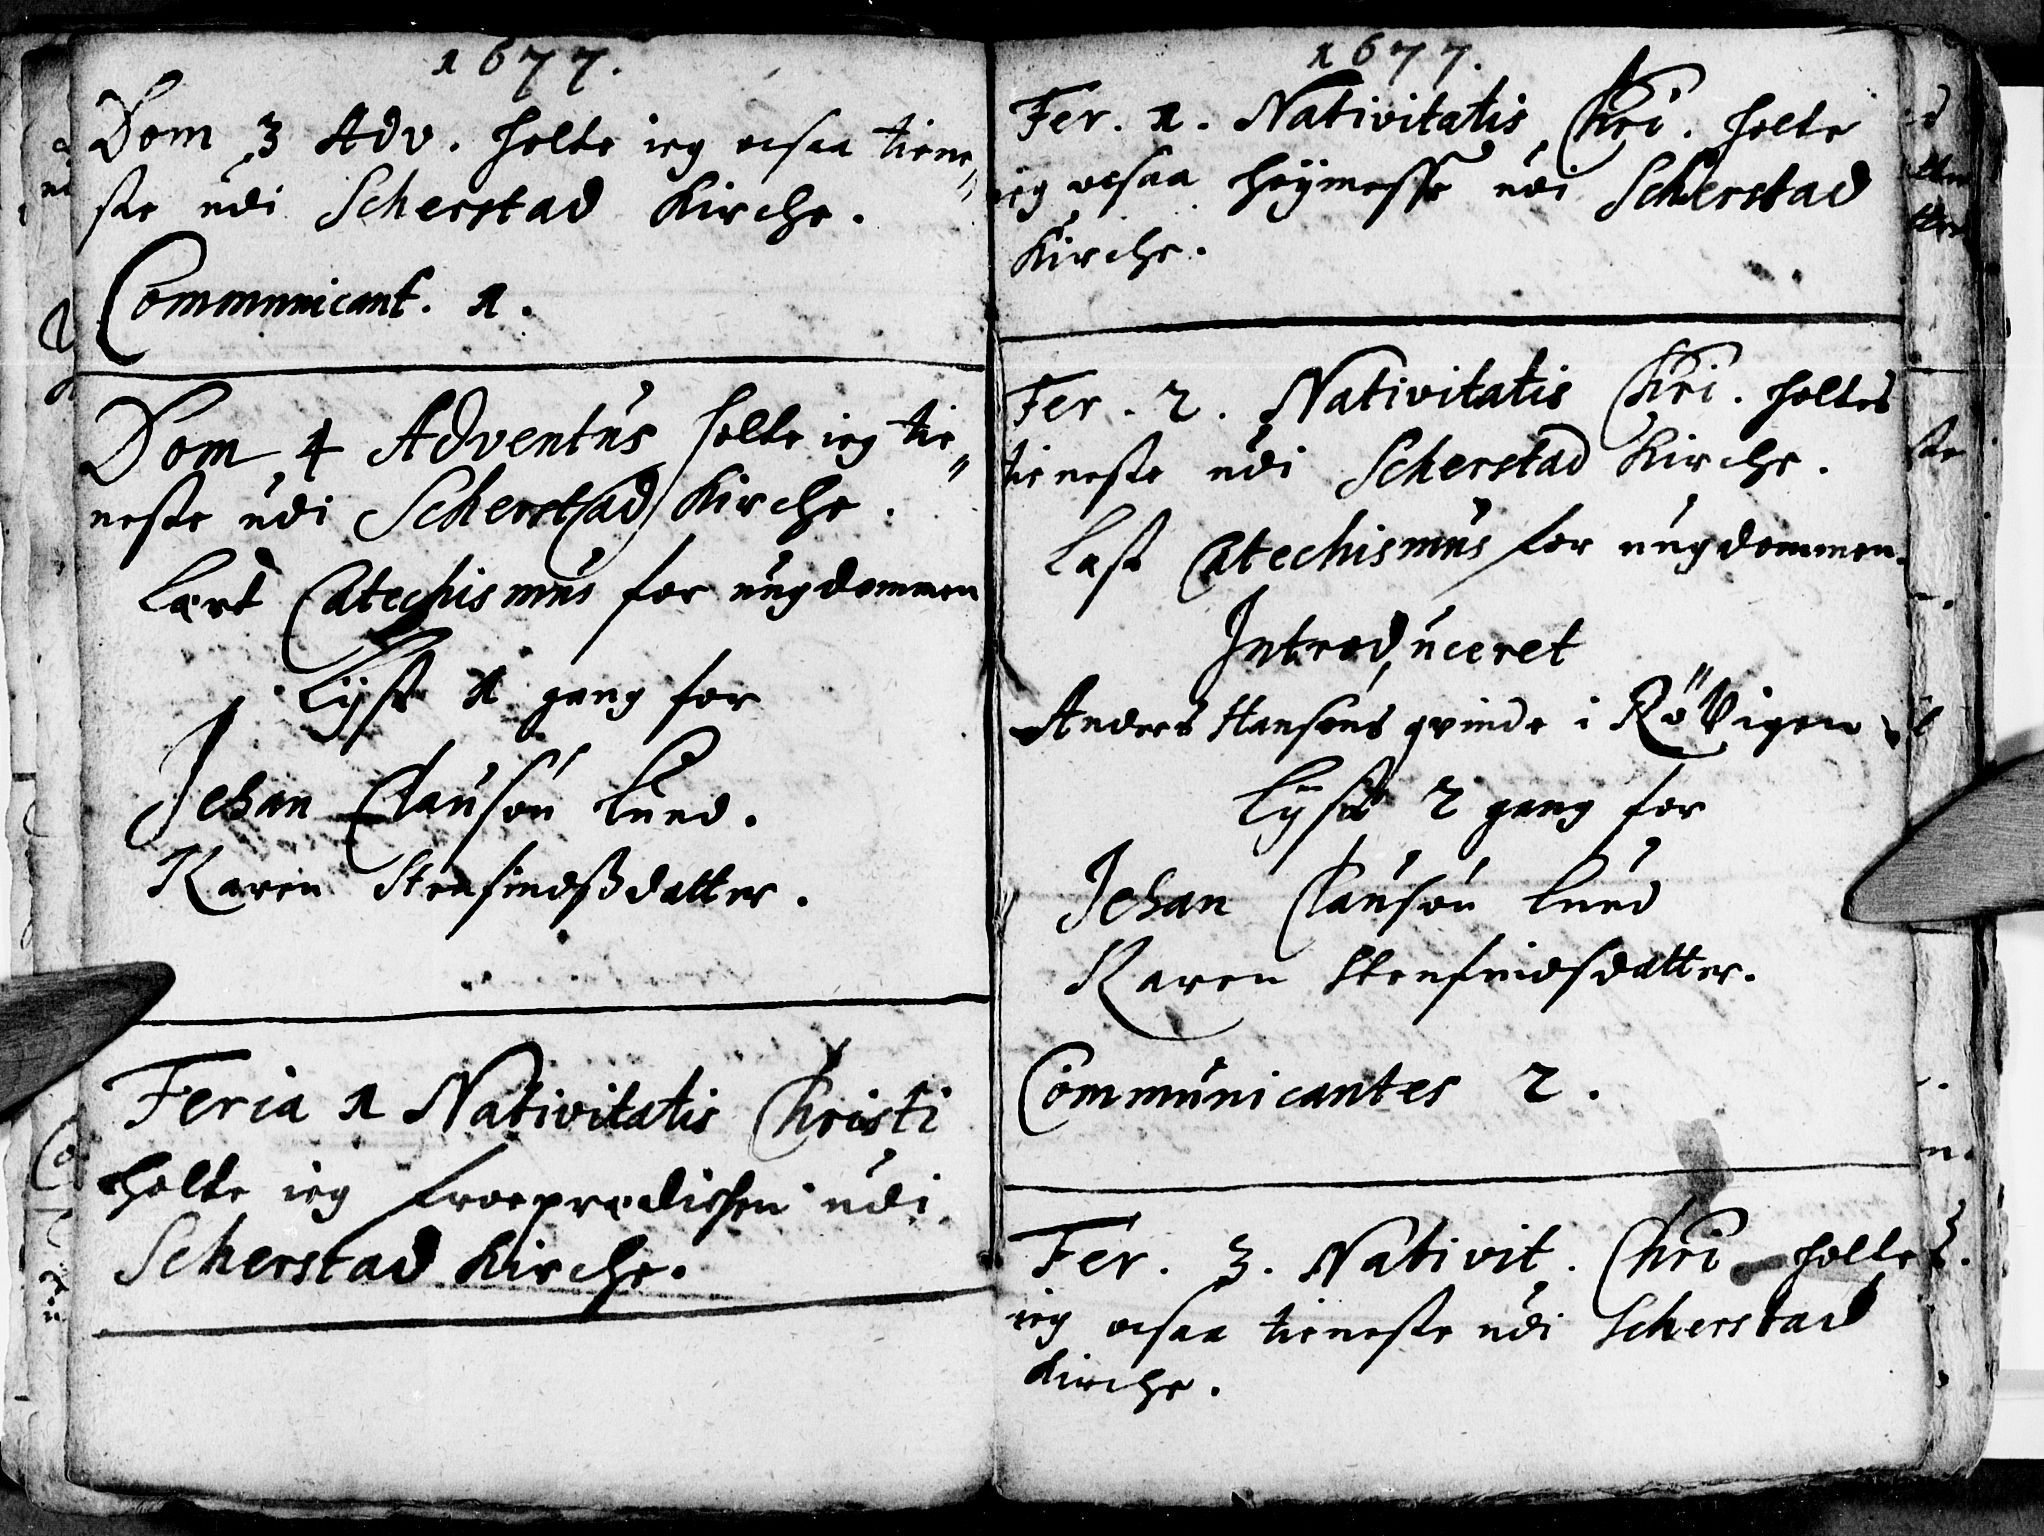 1677.
Dom 3 Adv. holte ieg ocsaa tiene„
ste udi Scherstad Kirche.
Communicant. 1.
Dom 4 Adventus holte ieg tie„
neste udi Scherstad Kirche.
Lært Catechismus for ungdommen
Lÿst 1 gang for
Johan Clausøn Lund.
Karen Stensindßdatter.
Feria 1 Nativitatis Christi
holte ieg froeprædichen udi
Scherstad Kirche.
1677.
Fer. 1. Nativitatis Chri. holte
ieg ocsaa høÿmesse udi Scherstad
Kirche.
Fer. 2. Nativitatis Chri. holtes
tieneste udi Scherstad Kirche.
Læst Catechismus for ungdommen.
Introduceret
Anders Hansøns qvinde i Rövigen
Lÿst 2 gang for
Johan Clausøn Lund
Karen Stensindsdatter.
Communicantes 2.
Fer. 3. Nativit. Chri holte
ieg ocsaa tieneste udi Scherstad
Kirche.